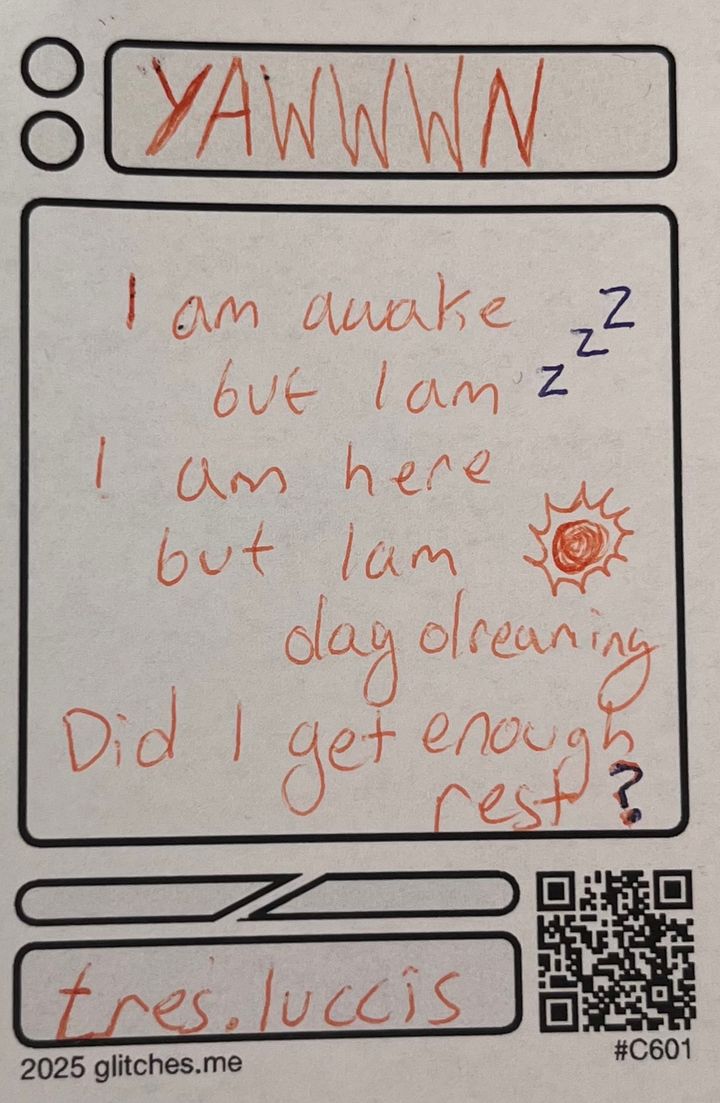 YAWWWN
I am awake
but I am zzz
I am here
but I am
day dreaming
Did I get enough
rest?
tres.luccis
2025 glitches.me
#C601